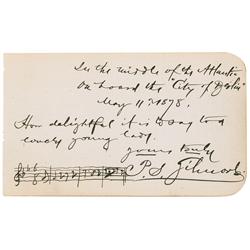 In the middle of the Atlantic
On board the "City of Berlin"
May 11th 1878.
How delightful it is to say to a
lovely young lady.
yours truly
P. S. Gilmore.